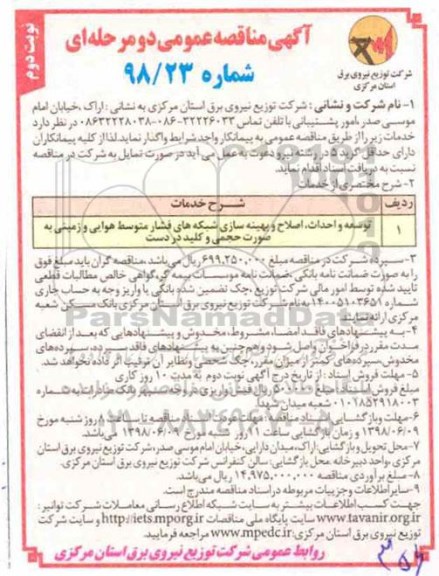 نوبت دوم
آگهی مناقصه عمومی دو مرحله‌ای
شماره ۹۸/۲۳
شرکت توزیع نیروی برق
استان مرکزی
۱- نام شرکت و نشانی: شرکت توزیع نیروی برق استان مرکزی به نشانی: اراک، خیابان امام
موسی صدر، امور پشتیبانی با تلفن تماس ۳۲۲۲۶۰۳۳-۰۸۶ ۰۸۶۳۲۲۲۸۰۳۸ در نظر دارد
خدمات زیر را از طریق مناقصه عمومی به پیمانکار واجد شرایط واگذار نماید. لذا از کلیه پیمانکاران
دارای حداقل گرید ۵ در رشته نیرو دعوت به عمل می آید در صورت تمایل به شرکت در مناقصه
نسبت به دریافت اسناد اقدام نماید.
۲- شرح مختصری از خدمات
ردیف شرح خدمات
۱ توسعه و احداث، اصلاح و بهینه سازی شبکه های فشار متوسط هوایی و زمینی به
صورت حجمی و کلید در دست
۳- سپرده شرکت در مناقصه مبلغ ۶۹۹،۲۵۰،۰۰۰ ریال می باشد. مناقصه گران باید مبلغ فوق
را به صورت ضمانت نامه بانکی، ضمانت نامه موسسات بیمه گر، گواهی خالص مطالبات قطعی
تایید شده توسط امور مالی شرکت توزیع، چک تضمین شده بانکی یا واریز وجه به حساب جاری
شماره ۱۴۰۰۵۱۰۳۶۵۱ به نام شرکت توزیع نیروی برق استان مرکزی بانک مسکن شعبه
مرکزی ارائه نمایند.
۴- به پیشنهادهای فاقد امضاء، مشروط، مخدوش و پیشنهادهایی که بعد از انقضای
مدت مقرر در فراخوان واصل شود و هم چنین به پیشنهادهای فاقد سپرده، سپرده‌های
مخدوش، سپرده‌های کمتر از میزان مقرر، چک شخصی و نظایر آن ترتیب اثر داده نخواهد شد.
۵- مهلت فروش اسناد: از تاریخ درج آگهی نوبت دوم به مدت ۱۰ روز کاری
مبلغ فروش اسناد: مبلغ ریال فیش واریزی در وجه سپهر بانک صادرات به شماره
۰۱۰۷۸۵۲۹۱۸۰۰۳ شعبه میدان شهدا
۶- مهلت و بازگشایی اسناد مناقصه: مناقصه تا ساعت روز شنبه مورخ
۱۳۹۸/۰۶/۰۹ و زمان بازگشایی ساعت ۱۱ روز شنبه مورخ ۱۳۹۸/۰۶/۰۹ می باشد.
۷- محل تحویل و بازگشایی: اراک، میدان دارایی، خیابان امام موسی صدر، شرکت توزیع نیروی برق استان
مرکزی، واحد دبیرخانه. محل بازگشایی: سالن کنفرانس شرکت توزیع نیروی برق استان مرکزی.
۸- مبلغ برآوردی مناقصه ۱۴،۹۷۵،۰۰۰،۰۰۰ ریال می باشد.
۹- سایر اطلاعات و جزییات مربوطه در اسناد مناقصه مندرج است.
جهت کسب اطلاعات بیشتر به سایت شبکه اطلاع رسانی معاملات شرکت توانیر:
www.tavanir.org.ir سایت پایگاه ملی مناقصات http://iets.mporg.ir و سایت شرکت
توزیع نیروی برق استان مرکزی: www.mpedc.ir مراجعه فرمایید.
روابط عمومی شرکت توزیع نیروی برق استان مرکزی
ParsNamadData
۰۲۱-۸۸۳۴۹۶۷۰-۵